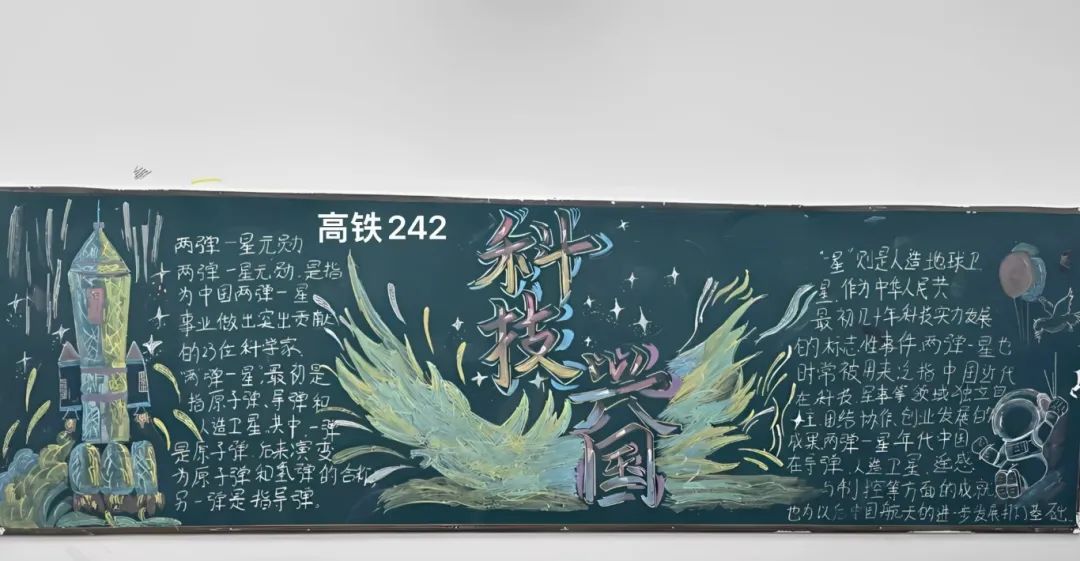 高铁242
科技
兴国
两弹一星元勋
两弹一星元勋,是指
为中国两弹一星
事业做出突出贡献
的23位科学家.
"两弹一星"最初是
指原子弹,导弹和
人造卫星.其中一弹
是原子弹,后来演变
为原子弹和氢弹的合称
另一弹是指导弹。
"星"则是人造地球卫
星.作为中华人民共
最初几十年科技实力发展
的标志性事件,两弹一星也
时常被用来泛指中国近代
在科技,军事等领域独立自
主,团结协作,创业发展的
成果两弹一星年代中国
在导弹,人造卫星,遥感
与制控等方面的成就
也为以后中国航天的进一步发展打基础.